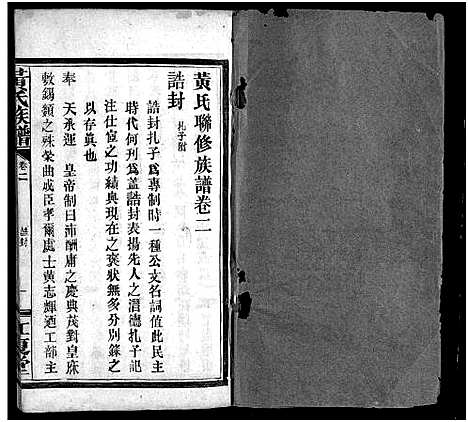 黃氏聯修族譜卷二
誥封 扎子附
誥封扎子爲專制時一種公文名詞值此民主
時代何刊爲蓋誥封表前人之潛德扎子記
注仕宦之功績與現在之褒狀無多分別錄之
以存眞也
奉 天承運 皇帝制曰沛酬庸之慶典茂對皇庥
敷錫類之殊榮曲成臣孝爾處士黃志輝迺工部主
黃氏族譜 卷二 誥封 一 江夏堂